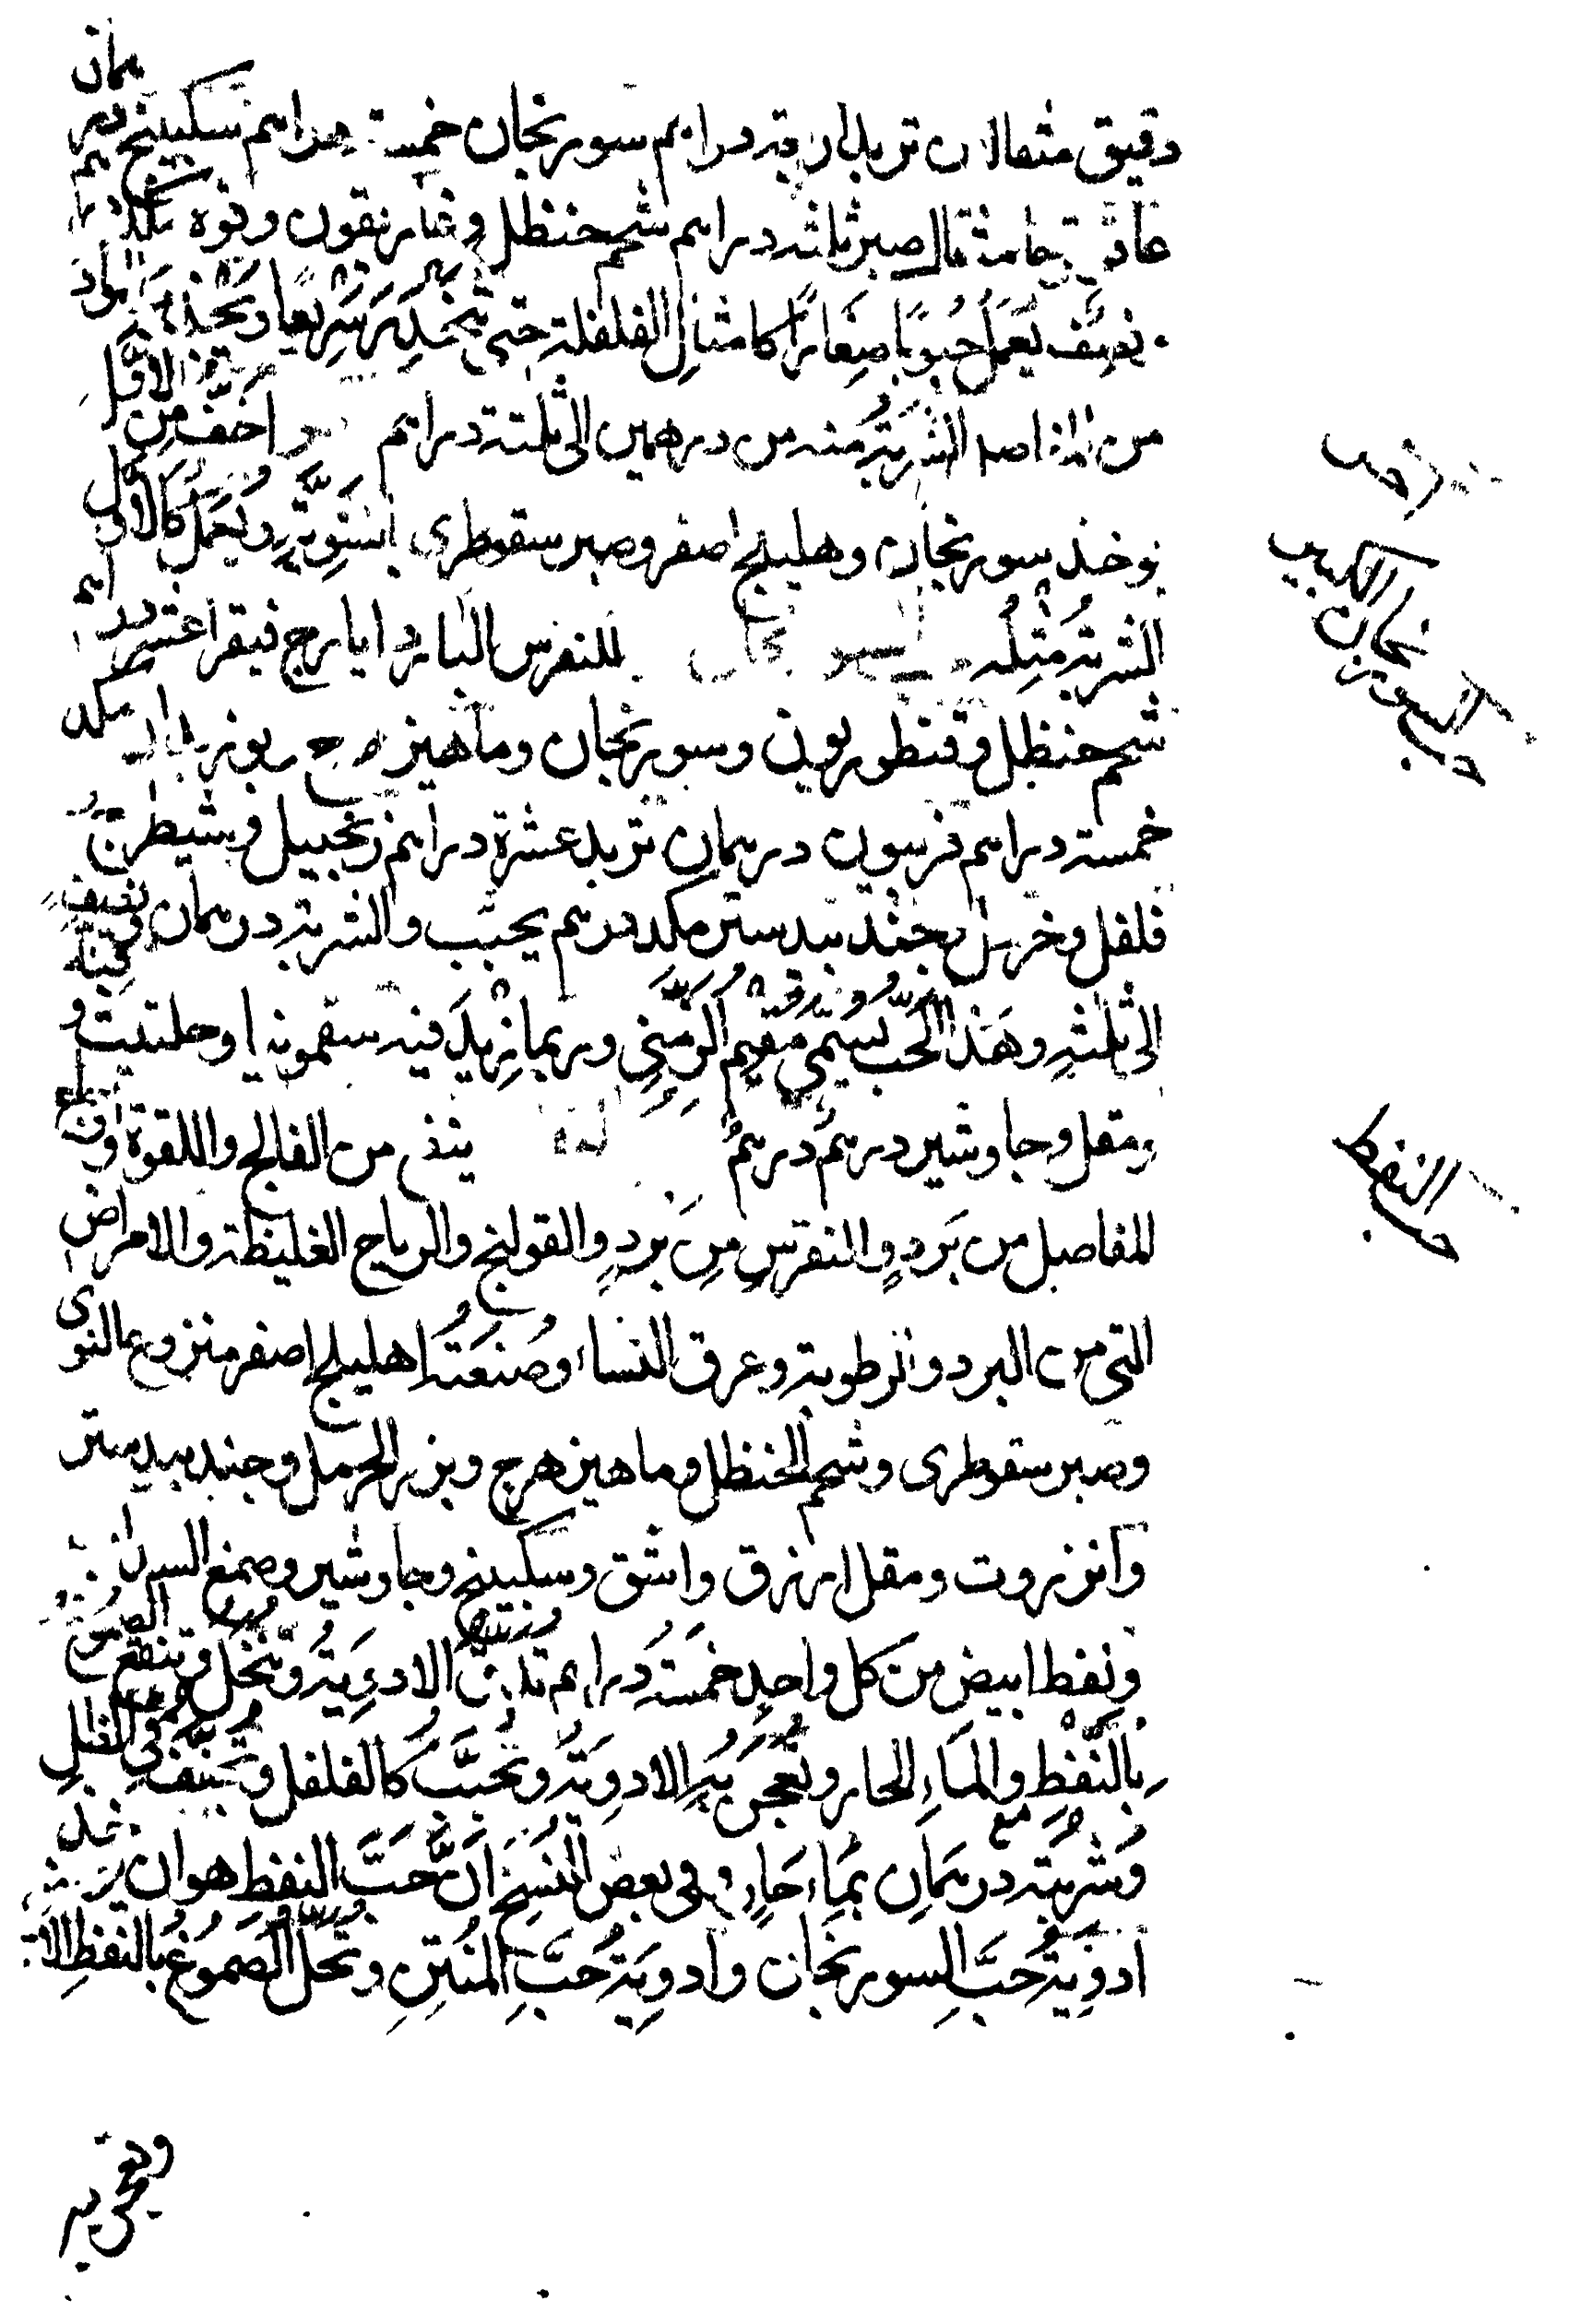 دقيق مثقالان تربد اربعة دراهم سورنجان خمسة دراهم سكبينج درهمان
صبر ثلثة دراهم شحم حنظل وغاريقون وفوه مكد درهم
نصف يعمل حبوبًا صغارًا كامثال الفلفلة حتى تنحدر سريعا
من الشربة منه من درهمين الى ثلثة دراهم اخف من الاول
يوخذ سورنجان وهليلج اصفر وصبر سقوطري بالسوية ويعمل كالاول
الشربة مثله للنقرس البارد ايارج فيقرا عشرة دراهم
شحم حنظل وقنطوريون وسورنجان وماهيزهرج مكد
خمسة دراهم فربيون درهمان تربد عشرة دراهم زنجبيل وشيطرج
فلفل وخردل وجند بيدستر مكد درهم يحبب والشربة درهمان ونصف
الى ثلثة وهذا الحب يسمى مقيم الزمنى وربما نزيد فيه سقمونيا وحلتيت
ومقل وجاوشير درهم درهم ينفع من الفالج واللقوة واوجاع
المفاصل من برد والنقرس من برد والقولنج والرياح الغليظة والامراض
التي من البرد والرطوبة وعرق النساء وصنعته اهليلج اصفر منزوع النوى
وصبر سقوطرى وشحم الحنظل وماهيزهرج وبزر الحرمل وجند بيدستر
وانزروت ومقل ازرق واشق وسكبينج وجاوشير وصمغ السداب
ونفط ابيض من كل واحد خمسة دراهم تدق الادوية وتنخل وتنقع الصموغ
بالنفط والماء الحار وتعجن به الادوية وتحبب كالفلفل وتجفف في الظل
وشربته درهمان بماء حار وفي بعض النسخ ان حب النفط هو ان
ادوية حب السورنجان وادوية حب المنتن وتحل الصموغ بالنفط
وتعجن به
حب السورنجان الكبير
حب النفط